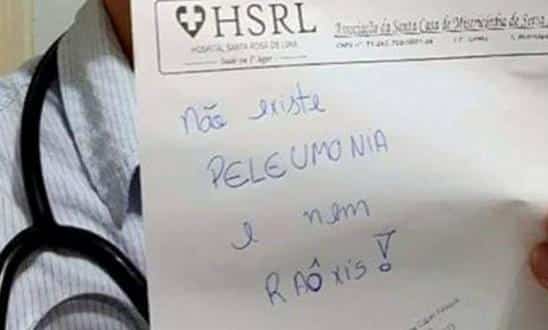 HSRL
HOSPITAL SANTA ROSA DE LIMA
Associação da Santa Casa de Misericórdia de Serra
não existe
PELEUMONIA
e nem
RAÔXIS!